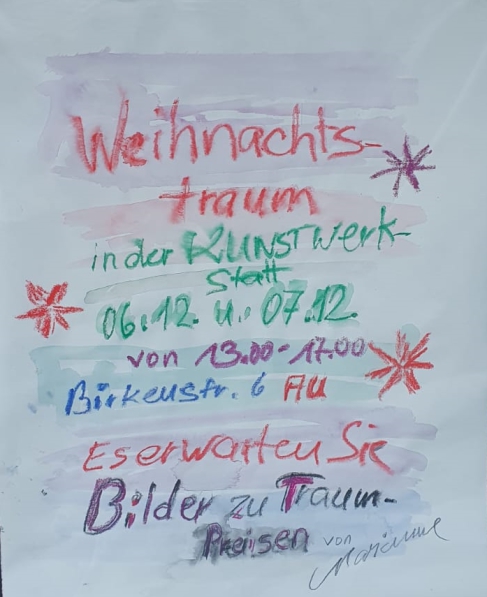 Weihnachts-
traum
in der KUNSTWerk-
Statt
06.12. u. 07.12.
von 13.00-17.00
Birkenstr. 6 AU
Es erwarten Sie
Bilder zu Traum-
Preisen von
Marianne